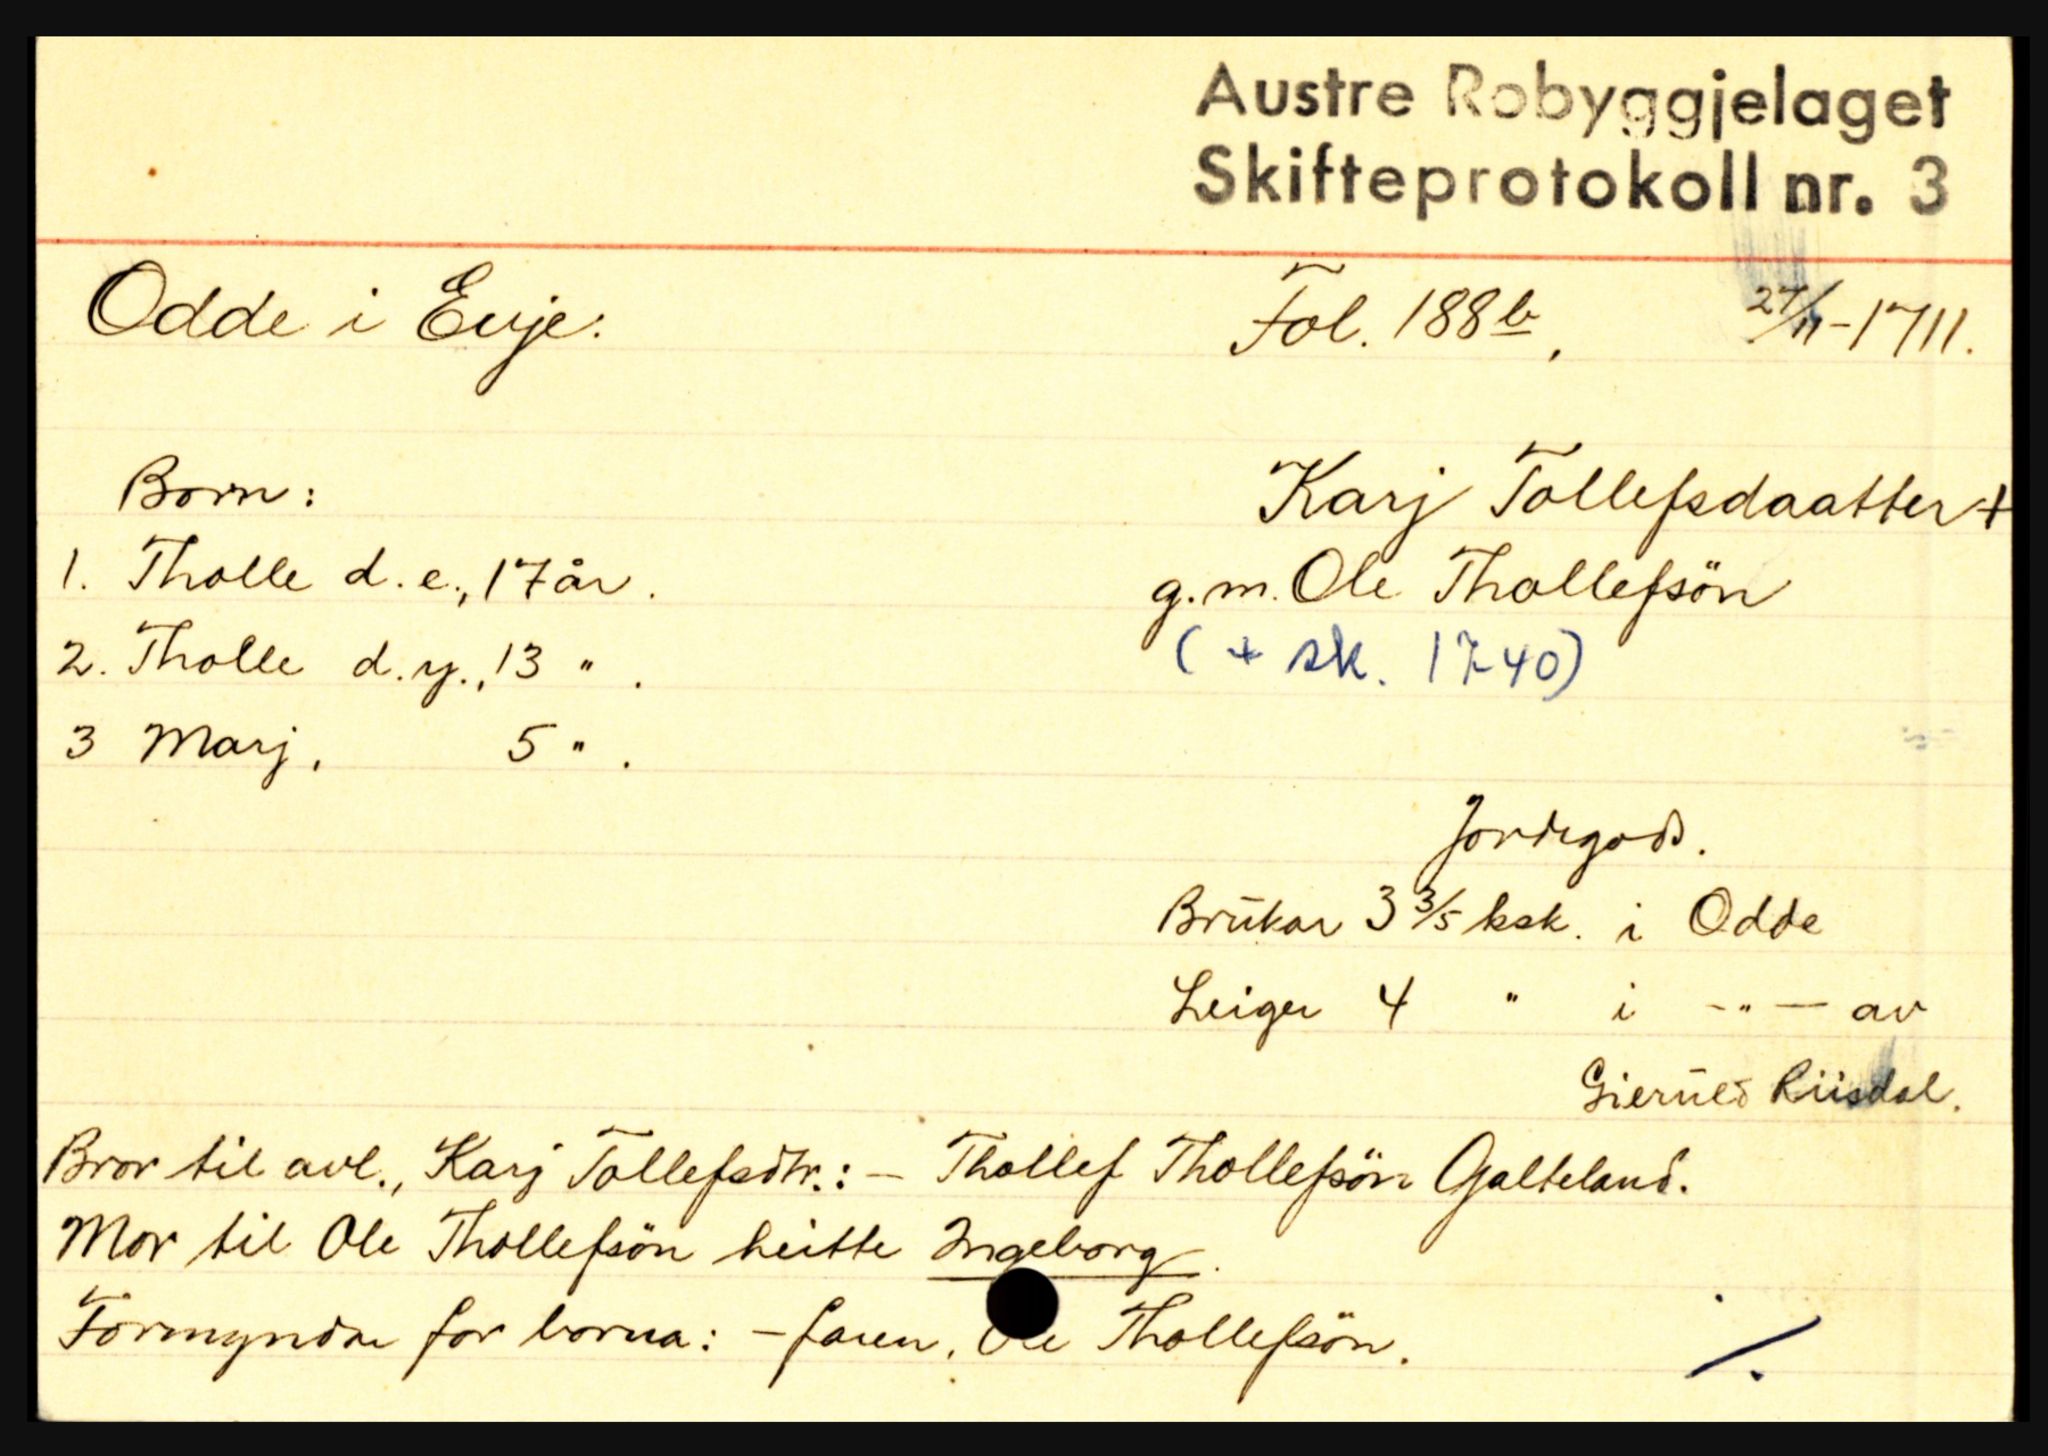 Austre Robyggjelaget
Skifteprotokoll nr. 3
Odde i Evje. Fol. 188 b, 27/11-1711.
Born: Karj Tollefsdaatter +
1. Tholle d.e., 17 år. g.m. Ole Thollefsön
2. Tholle d.y., 13 ". (+ sk. 1740)
3 Marj, 5 ".
Jordegods.
Brukar 3 3/5 ksk. i Odde
Leiger 4 " i -"- av
Gierued Riisdal.
Bror til avl., Karj Tollefsdtr.: - Thollef Thollefsön Galteland.
Mor til Ole Thollefsön heitte Ingeborg.
Formyndar for borna: - faren, Ole Thollefsön.